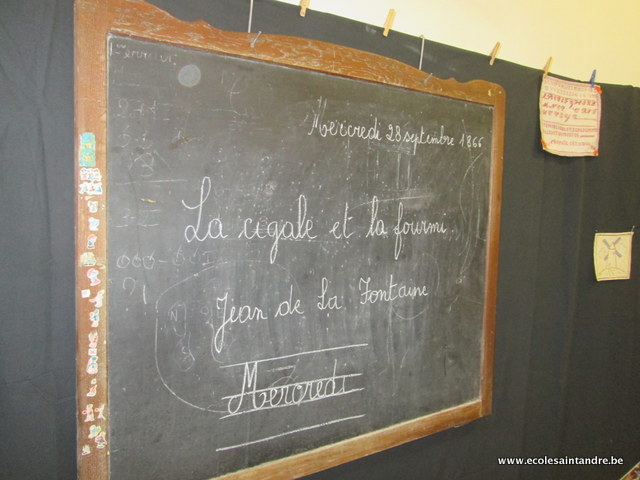 Mercredi 28 septembre 1866
La cigale et la fourmi.
Jean de La Fontaine
Mercredi
www.ecolesaintandre.be